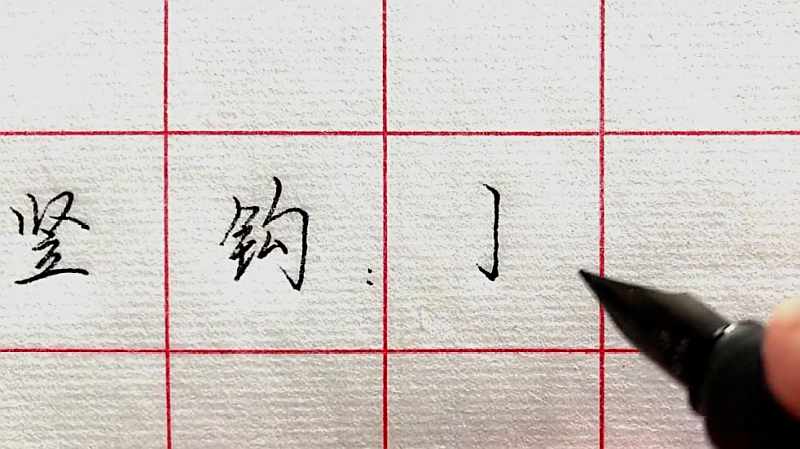 竖钩：亅